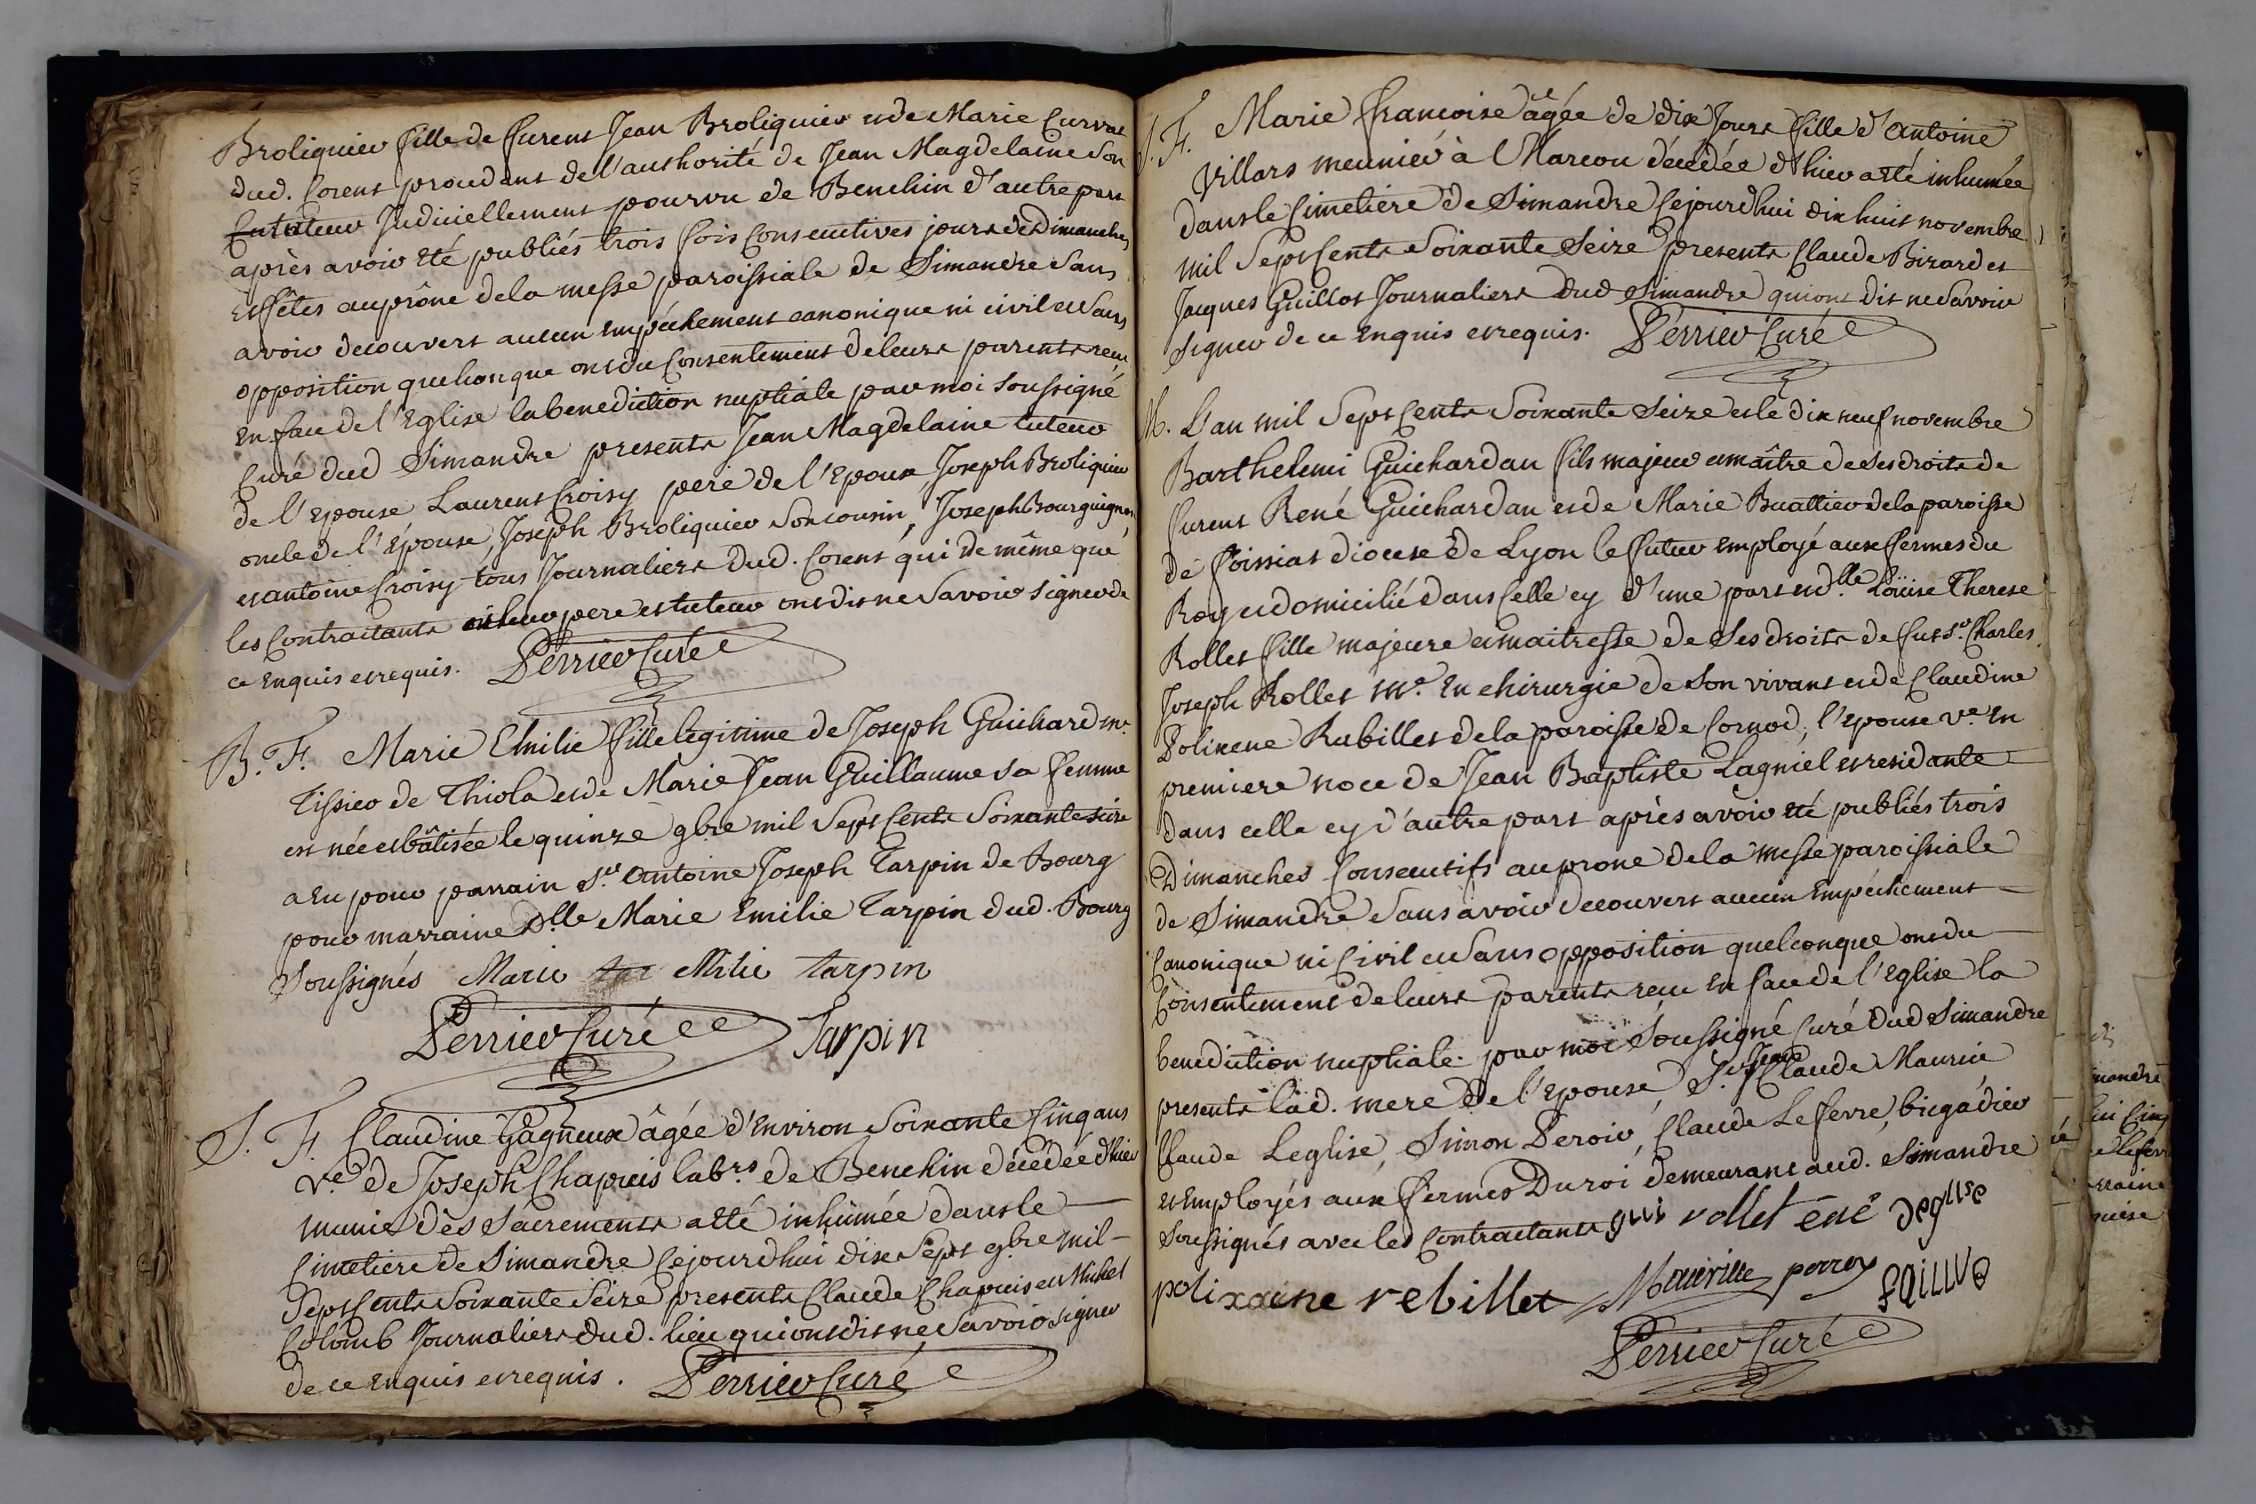 Broliquier fille de furent Jean Broliquier et de Marie Curvat
dud. Corent procedant de l'authorité de Jean Magdelaine Son
Tutateur Judiciellement pourvu de Benchin d'autre part
après avoir été publiés trois fois consecutives jours de Dimanches
et fêtes au prône de la messe paroissiale de Simandre Sans
avoir decouvert aucun empêchement canonique ni civil et Sans
opposition quelconque ont du Consentement de leurs parents recu
en face de l'Eglise la benediction nuptiale par moi Soussigné
Curé dud Simandre presents Jean Magdelaine tuteur
de l'epouse Laurent Croisy pere de l'epoux Joseph Broliquier
oncle de l'Epouse, Joseph Broliquier Son cousin, Joseph Bourguignon
et antoine Croisy tous Journaliers dud. Corent qui de même que
les Contractants et leur pere et tuteur ont dit ne Savoir signer de
ce Enquis et requis. Perrier Curé
B. F. Marie Emilie fille legitime de Joseph Guichard me.
Tissier de Thiola et de Marie Jean Guillaume Sa femme
est née et bâtisée le quinze 9bre mil Sept Cents Soixante Seize
a eu pour parrain Sr. Antoine Joseph Tarpin de Bourg
pour marraine Dlle Marie Emilie Tarpin dud. Bourg
Soussignés Marie Milie tarpin
Perrier Curé Tarpin
S. F. Claudine Gagneux âgée d'Environ Soixante Cinq ans
ve. de Joseph Chapuis labrs. de Benchin décédée d'hier
munie des Sacrements a été inhumée dans le
Cimetiere de Simandre Cejourdhui dix Sept 9bre mil
Sept Cents Soixante Seize presents Claude Chapuis et Michel
Colomb Journaliers dud. lieu qui ont dit ne Savoir signer
de ce enquis et requis. Perrier Curé
S. F. Marie francoise âgée de dix Jours fille d'Antoine
Villars meunier à Marcou décédée d'hier a été inhumée
dans le Cimetière de Simandre Cejourdhui dix huit novembre
mil Sept Cents Soixante Seize presents Claude Birard et
Jacques Guillot Journaliers dud Simandre qui ont dit ne Savoir
Signer de ce enquis et requis. Perrier Curé
M. L'an mil Sept Cents Soixante Seize et le dix neuf novembre
Barthelemi Guichardan fils majeur et maître de Ses droits de
furent René Guichardan et de Marie Buattier de la paroisse
de foissiat diocese de Lyon le futur employé aux fermes du
Roy et domicilié dans Celle cy d'une part et dlle Loüise Therese
Rollet fille majeure et maitresse de Ses droits de fut sr. Charles
Joseph Rollet Me. en chirurgie de Son vivant et de Claudine
Polixene Rubillet de la paroisse de Cornod, l'epouse ve. en
premiere noce de Jean Baptiste Lagniel et residante
dans celle cy d'autre part après avoir été publiés trois
Dimanches Consecutifs au prone de la messe paroissiale
de Simandre Sans avoir decouvert aucun Empêchement
Canonique ni Civil et Sans opposition quelconque ont du
Consentement de leurs parents recu en face de l'Eglise la
benediction nuptiale par moi Soussigné Curé dud Simandre
presents lad. mere de l'epouse, Sr Jean Claude Mauric
Claude Leglise, Simon Peroir, Claude Lefevre, brigadier
et Employés aux fermes Du roi demeurant aud. Simandre
Soussignés avec les Contractants rollet
polixaine rebillet perroy
Perrier Curé